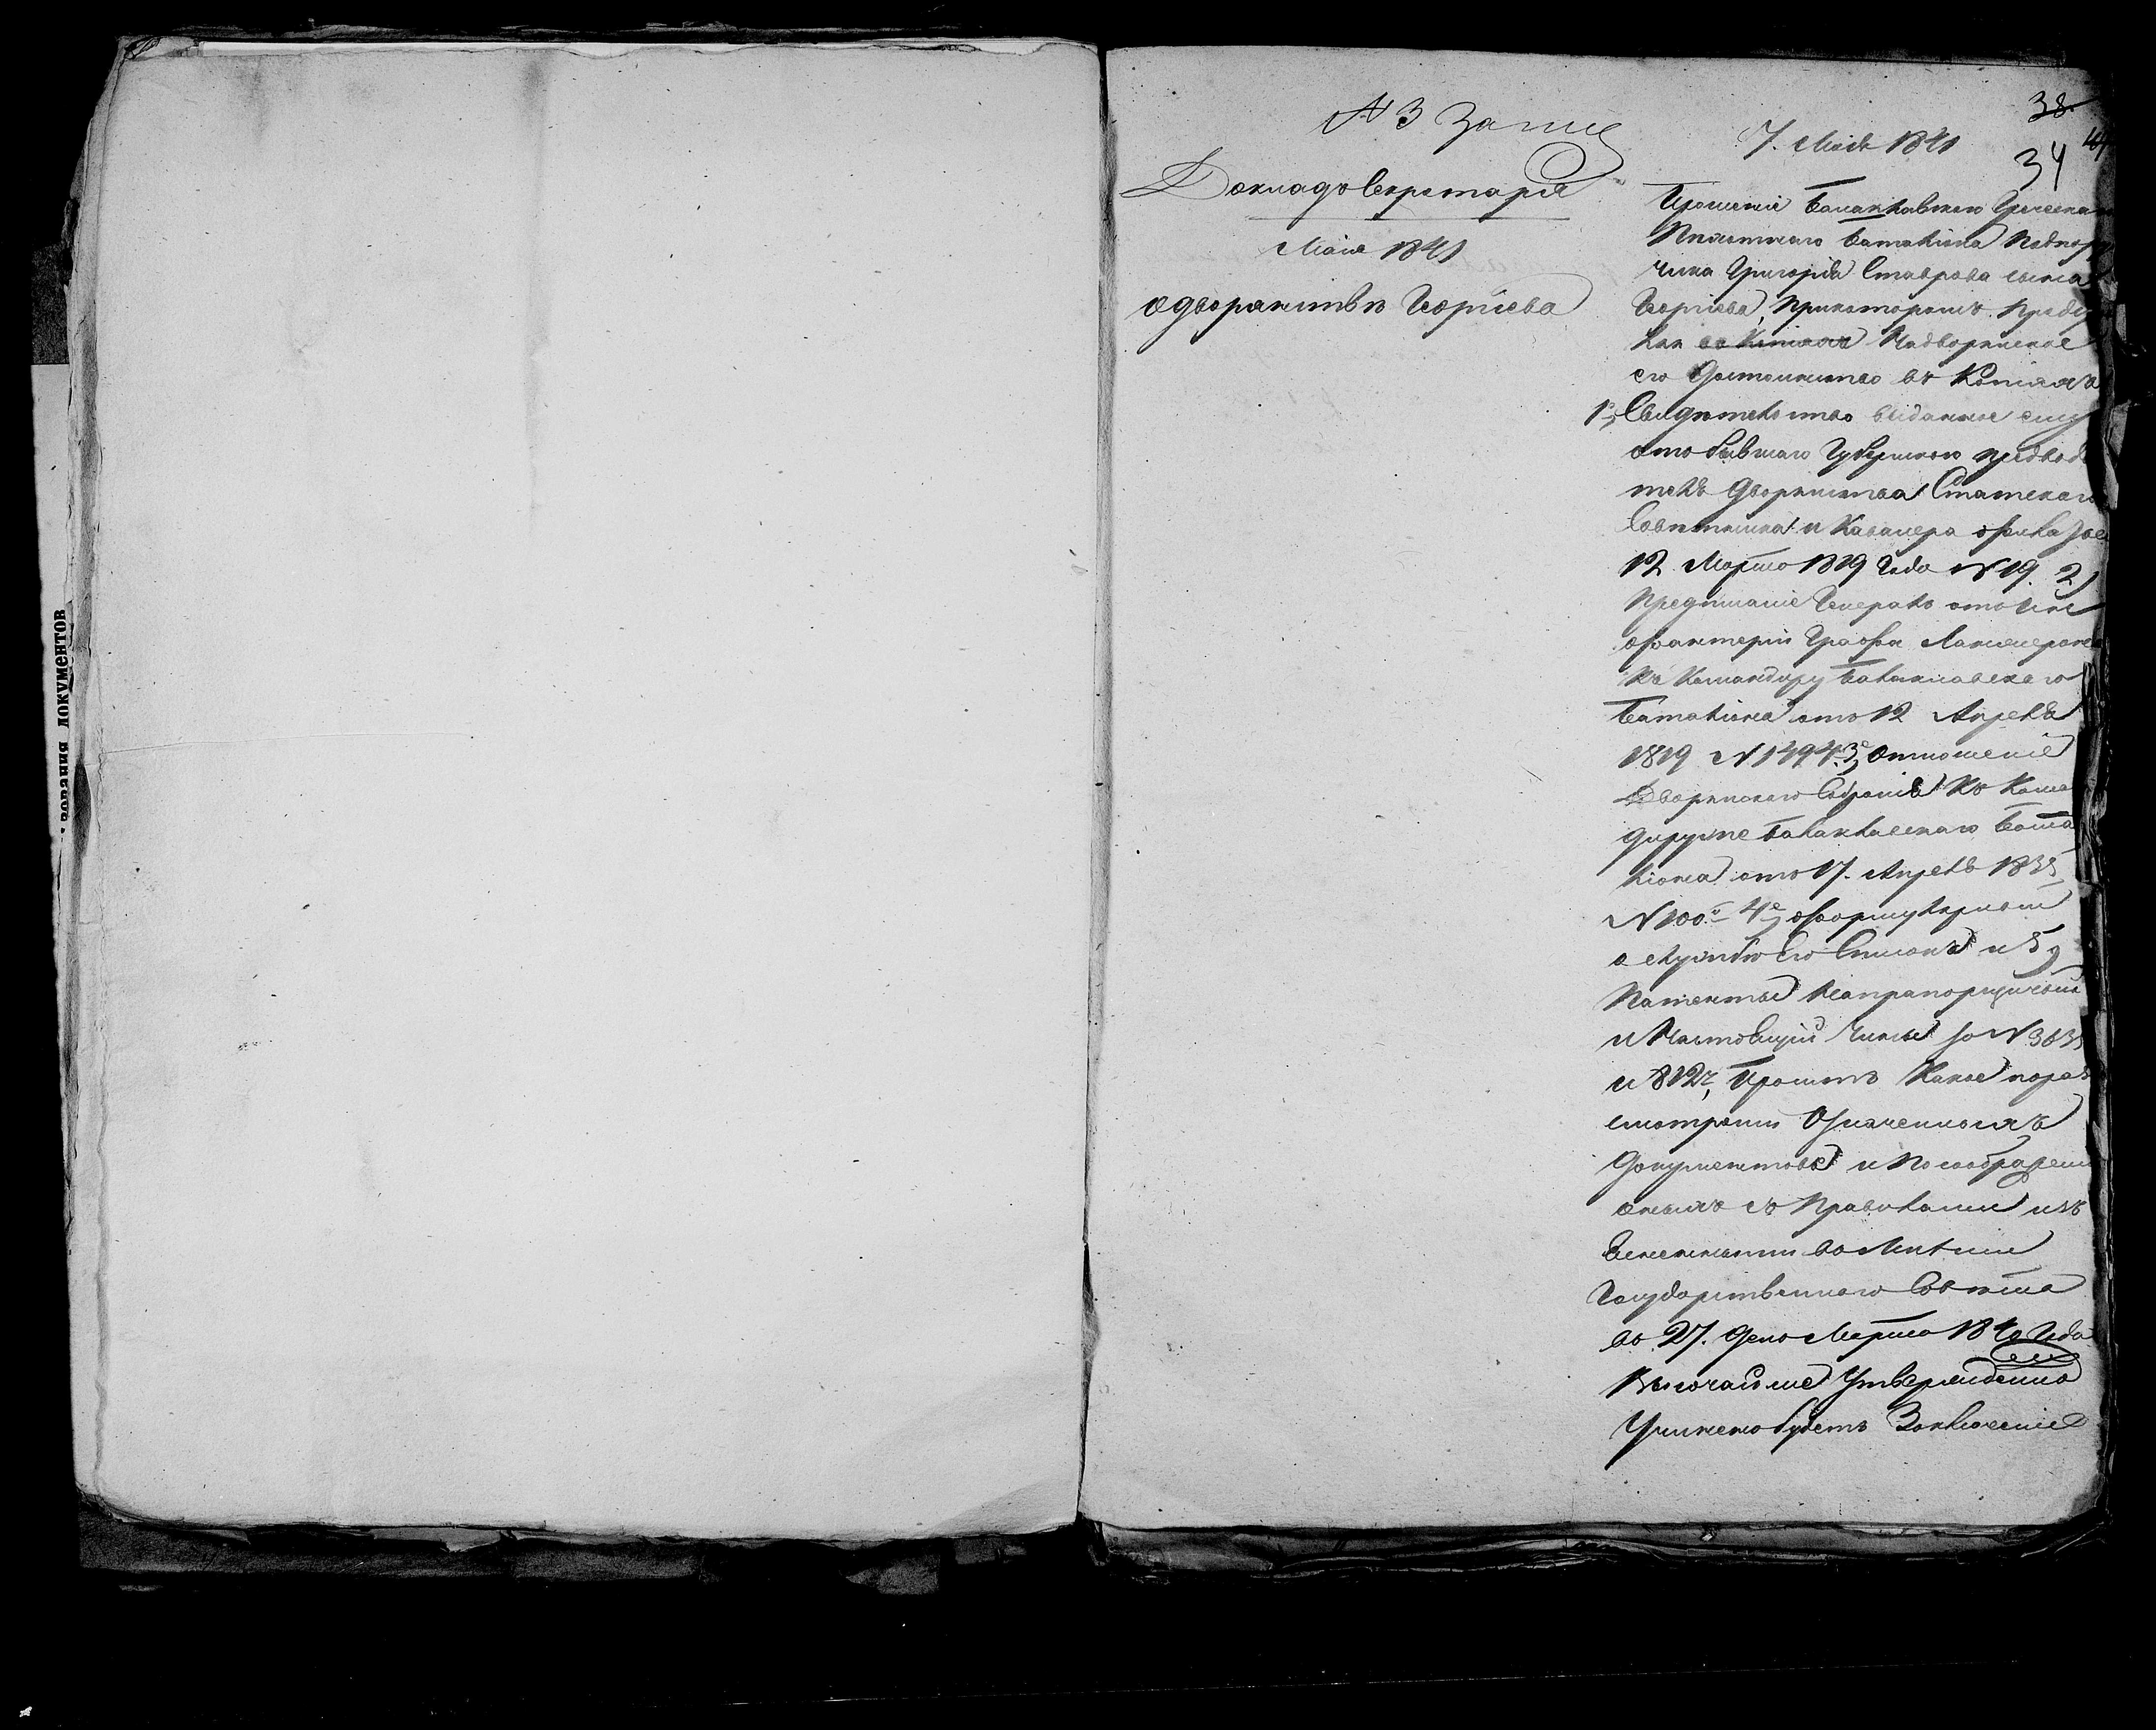 № 3 запис
Докладъ Секретаря
Маія 1841
о дворянствѣ Георгіева
38.
34
7. Маія 1841
Прошеніе Балаклавскаго Греческа
Пѣхотнаго баталіона Подпору
чика Григорія Ставрова сына
Георгіева, при которомъ предъ
въ копіяхъ На дворянское
его достоинство въ Копіяхъ
1е, Свидѣтельство выданное ему
отъ бывшаго Губернскаго предводи
теля дворянства Статскаго
Совѣтника и Кавалера
12 Марта 1819 Года № 19. 2)
Предписаніе Генерала отъ Ин
фантеріи Графа Ланжерона
къ Командиру Балаклавскаго
Баталіона отъ 12 Апреля
1819 № 1494. 3е, Отношеніе
Дворянскаго Собранія къ Коман
дирующе Балаклавскаго Бата
ліона отъ 17. Апреля 1835
№ 100.й 4е, Формулярный
о службѣ Его Списокъ и 5,
Патенты на прапорщичьій
и Настоящій Чины за № 3635
и 8122, Проситъ Какое по раз
смотреніи Означенныхъ
документовъ и по соображеніи
оныхъ съ Правилами изъ
ясненными во Мнѣніи
Государственнаго Совѣта
въ 27. день Марта 1840 Года
Высочайше Утвержденно
Учинено будетъ Заключеніе
зования документов